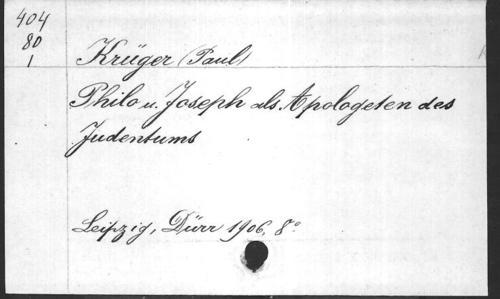 404
80
1
Krüger (Paul)
Philo u. Joseph als Apologeten des
Judentums
Leipzig, Dürr 1906, 8°